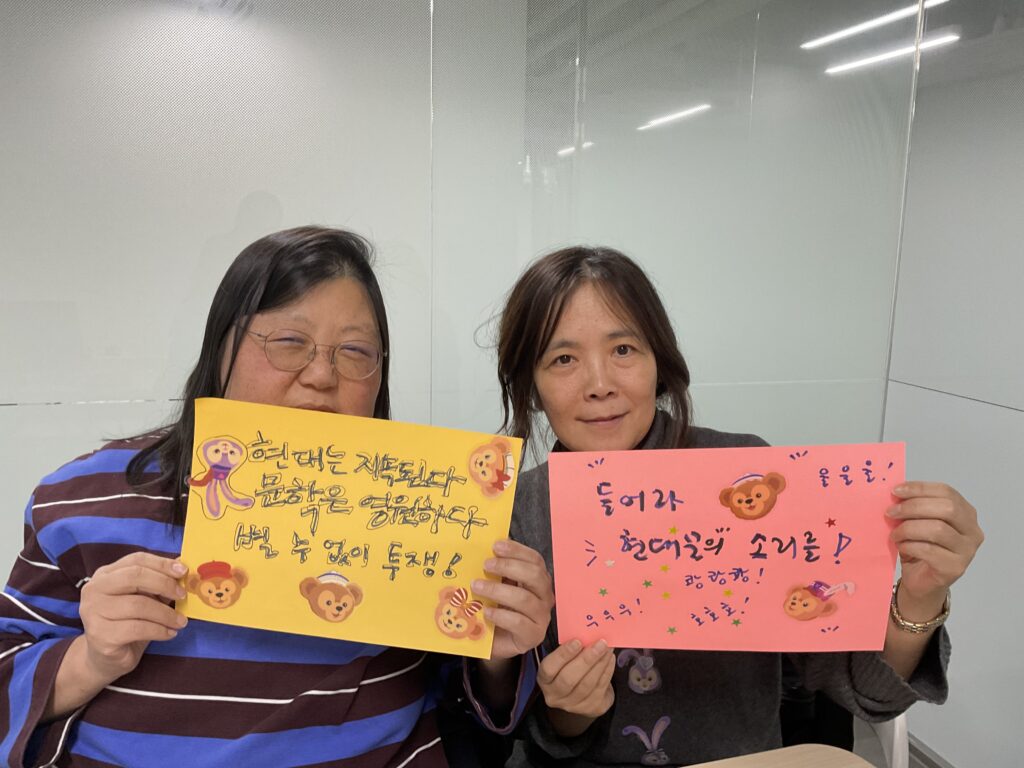 현대는 지속된다
문학은 영원하다
별 수 없이 투쟁!
들어라
울울울!
현대꾼의 소리를!
쾅쾅쾅!
우우우!
호호호!